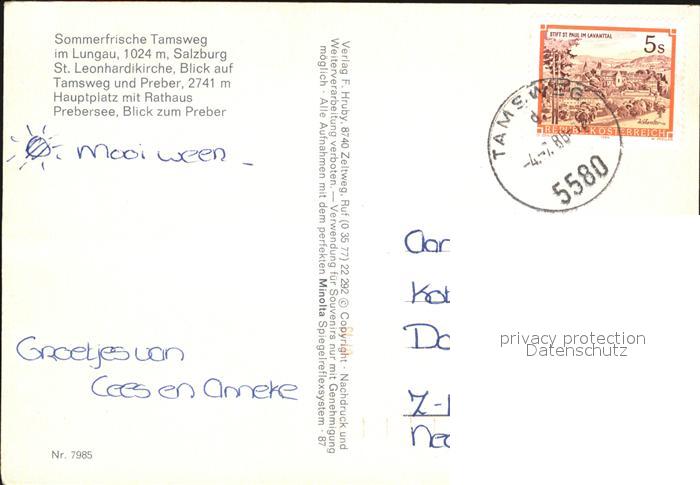 Sommerfrische Tamsweg
im Lungau, 1024 m, Salzburg
St. Leonhardikirche, Blick auf
Tamsweg und Preber, 2741 m
Hauptplatz mit Rathaus
Prebersee, Blick zum Preber
Mooi weer
Groetjes van
Cees en Anneke
Nr. 7985
Verlag F. Hruby, 8740 Zeltweg, Ruf (0 35 77) 22 292 © Copyright · Nachdruck und
Weiterverarbeitung verboten. — Verwendung für Souvenirs nur mit Genehmigung
möglich · Alle Aufnahmen mit dem perfekten Minolta Spiegelreflexsystem · 87
STIFT ST. PAUL IM LAVANTTAL
5 S
REPUBLIK ÖSTERREICH
TAMSWEG
5580
privacy protection
Datenschutz